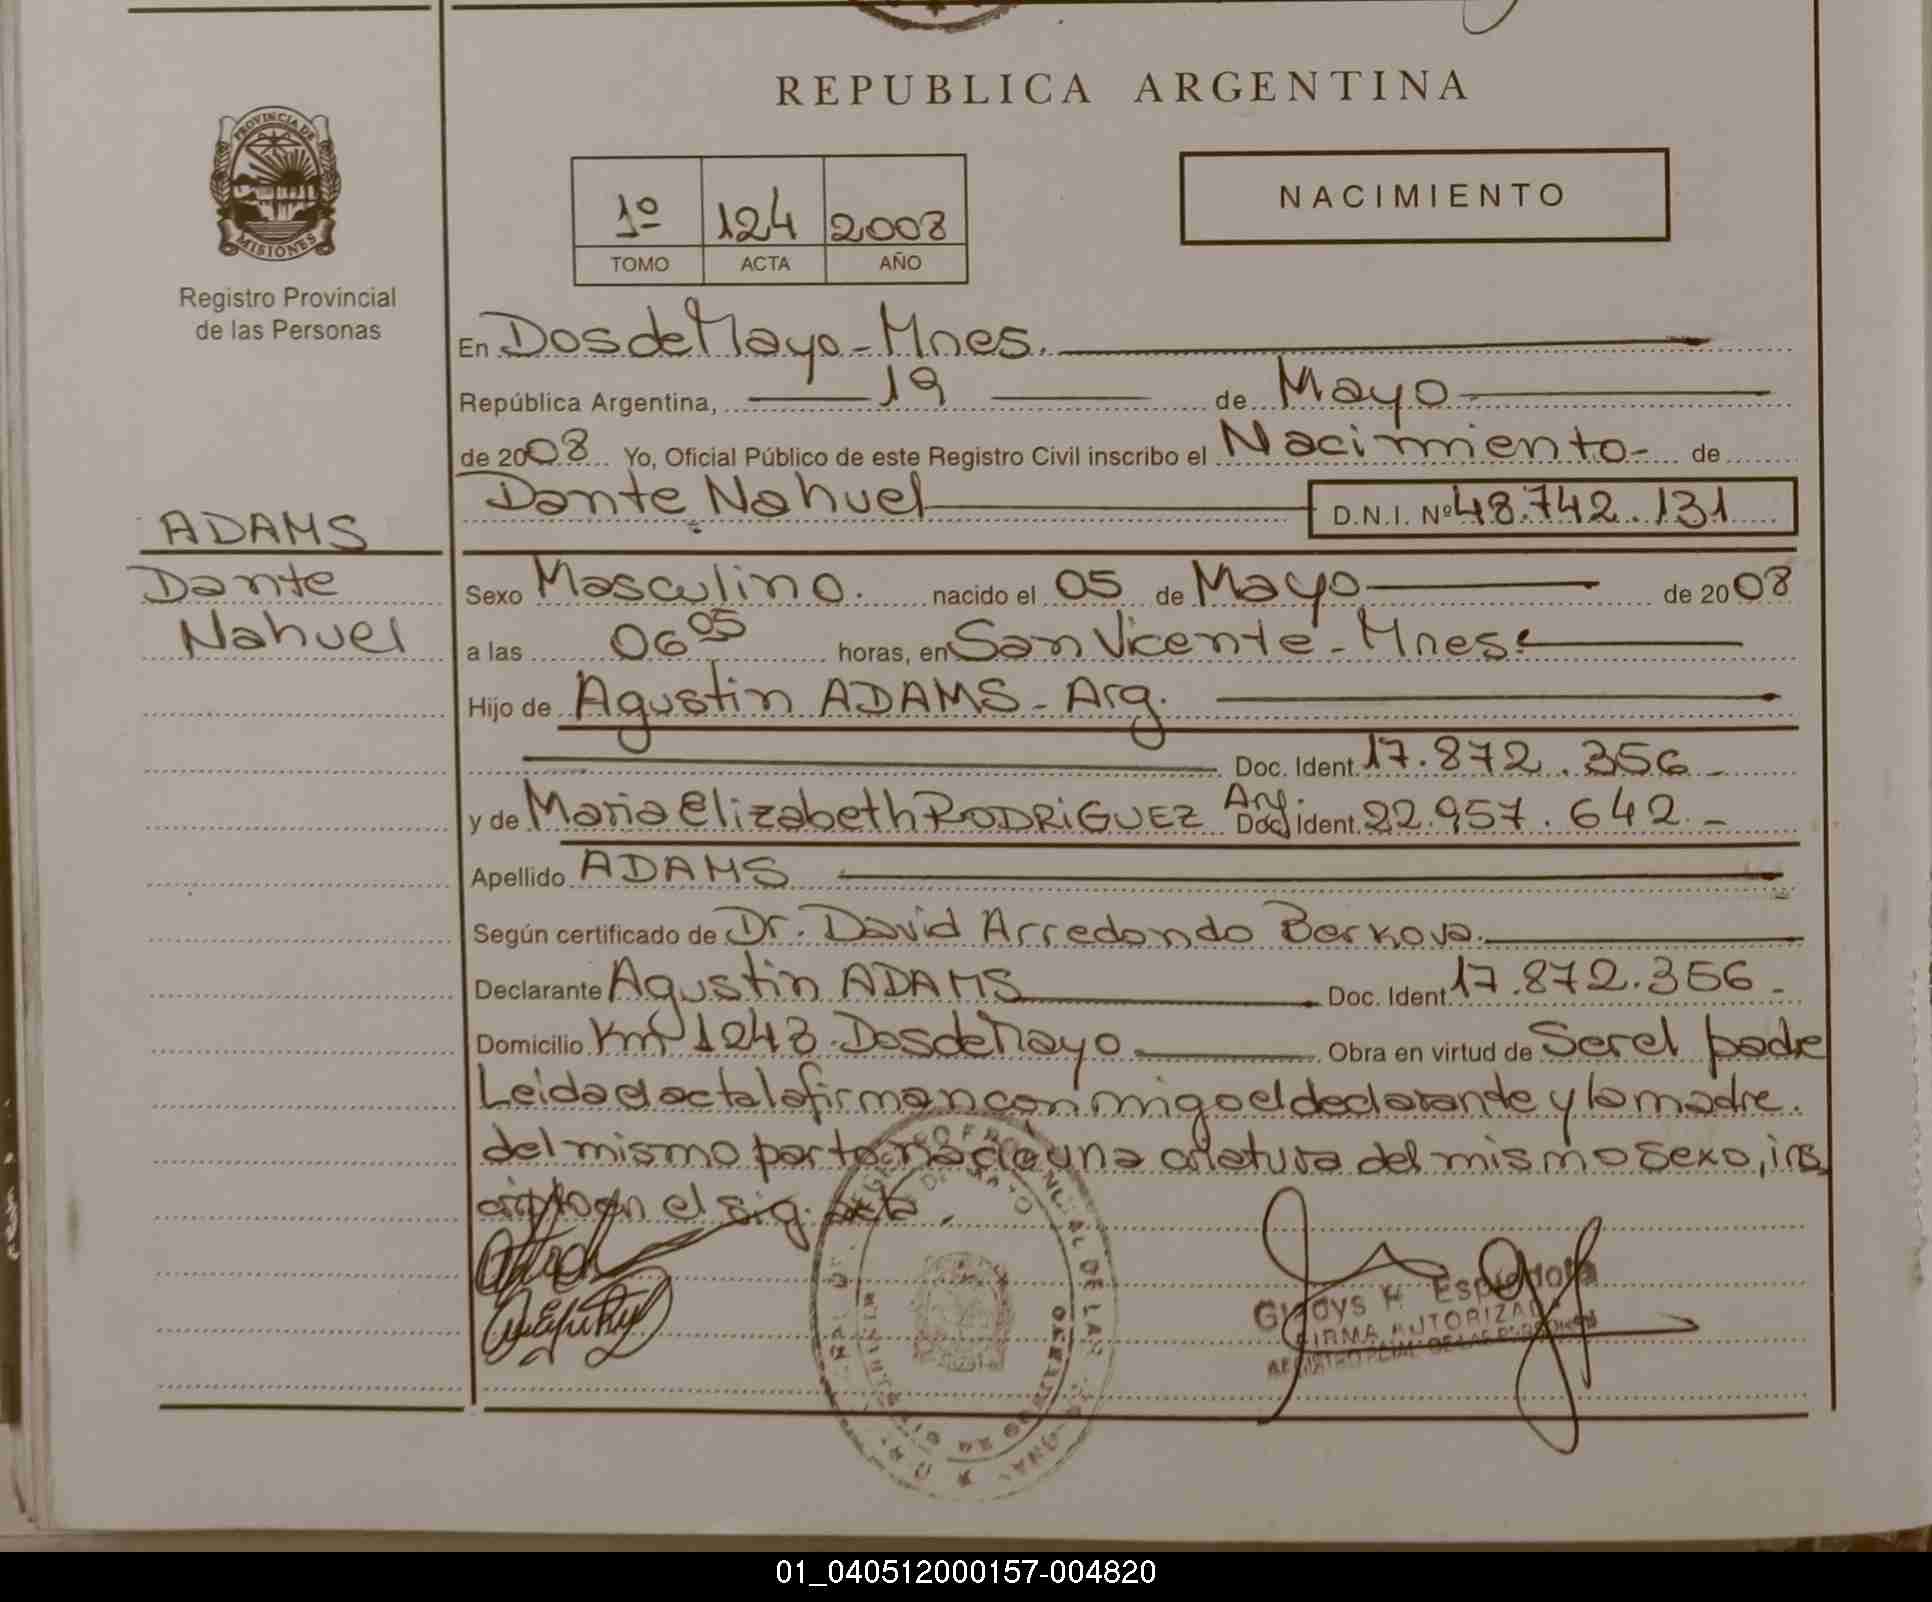 REPUBLICA ARGENTINA
PROVINCIA DE
MISIONES
Registro Provincial
de las Personas
1º 124 2008
TOMO ACTA AÑO
NACIMIENTO
En Dos de Mayo - Mnes.
República Argentina, 19 de Mayo
de 2008 Yo, Oficial Público de este Registro Civil inscribo el Nacimiento - de
Dante Nahuel D.N.I. Nº 48.742.131
ADAMS
Dante
Nahuel
Sexo Masculino. nacido el 05 de Mayo de 2008
a las 06 05 horas, en San Vicente - Mnes.
Hijo de Agustin ADAMS - Arg.
Doc. Ident. 17.872.356 -
y de Maria Elizabeth RODRIGUEZ Arg. Doc. Ident. 22.957.642 -
Apellido ADAMS
Según certificado de Dr. David Arredondo Berkova
Declarante Agustin ADAMS Doc. Ident. 17.872.356 -
Domicilio Km 1243 - Dos de Mayo Obra en virtud de Ser el padre
Leida el acta la firman conmigo el declarante y la madre.
del mismo parto nacio una criatura del mismo sexo, ins
cripto en el sig. acta.
Gladys H. Espindola
FIRMA AUTORIZADA
01_040512000157-004820